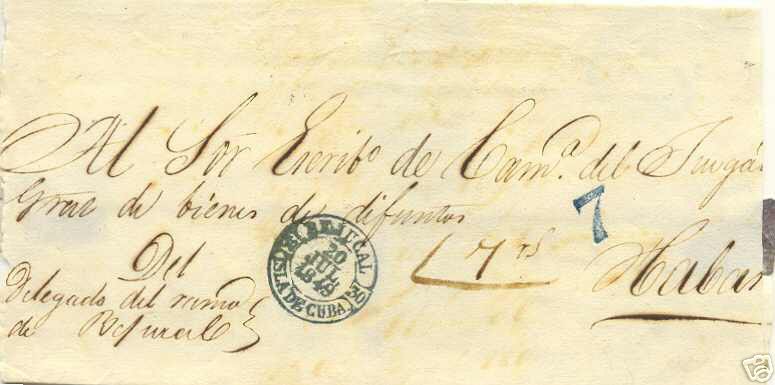 Al Sor Escribo de Camª del Juzgá
Gral de bienes de difuntos
7
7 rs
Haban
Del
delegado del ramo
de Bejucal
BEJUCAL
20
JUL
1848
ISLA DE CUBA